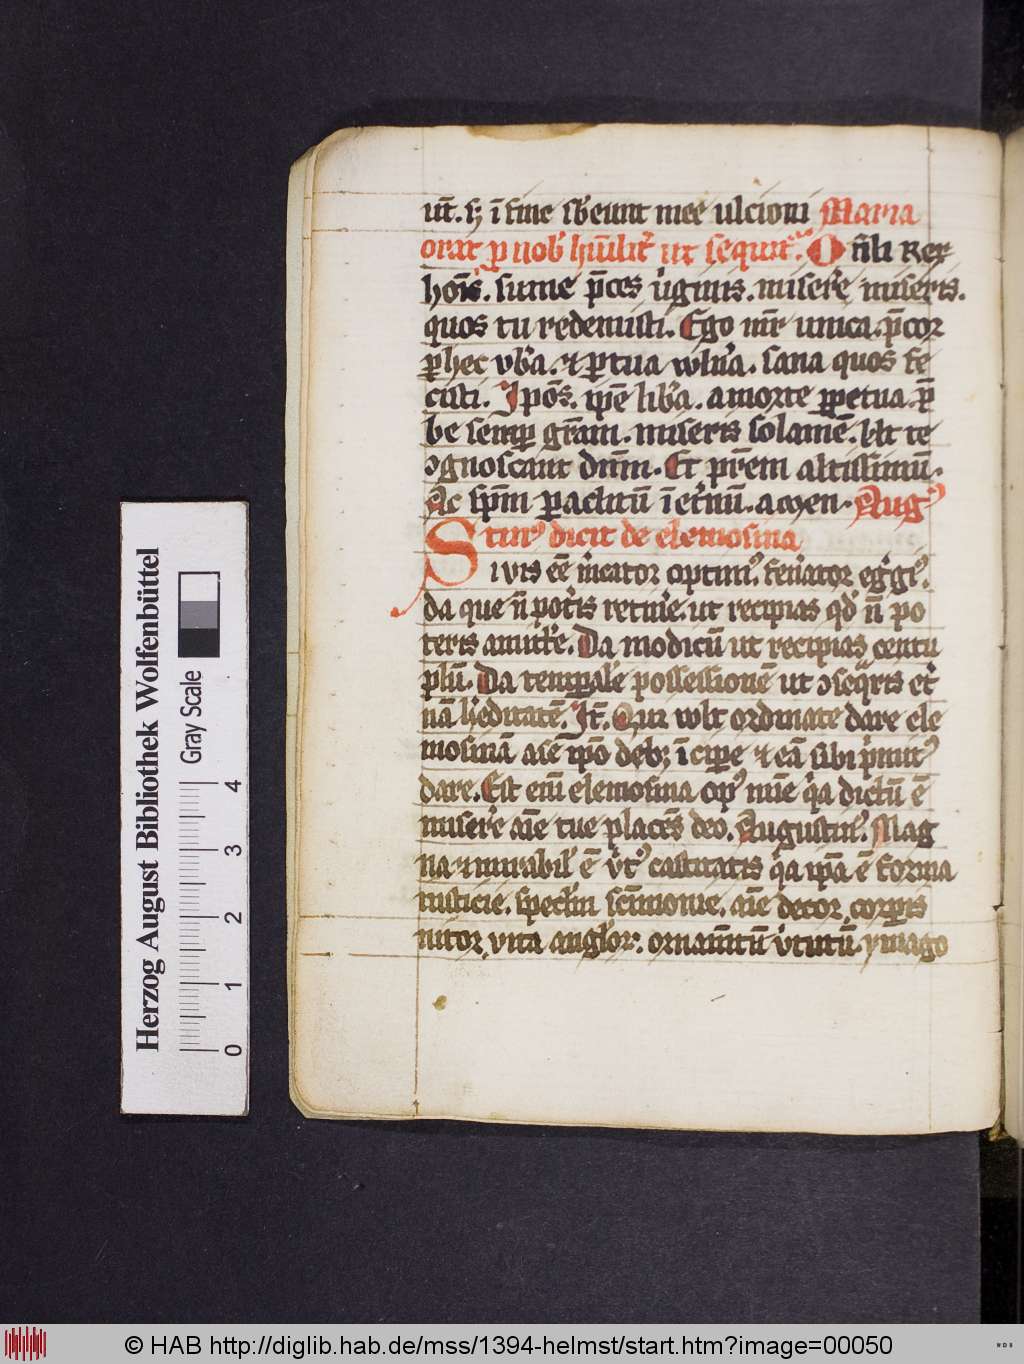 ut̄. sꝫ ī fine sb̄eunt mee ulcioni Maria
orat ꝓ nob̓ hūilit̓ ut sequit̓ O n̄li Rex
hoīs. sume p̄ces u̓ginis. misere̓ miseris.
quos tu redemisti. Ego mr̄ unica. p̄cor
ꝑ hec vb̓a. ⁊ ꝑ tua wln̓a. sana quos fe
cisti. I pōs. ip̄e lib̓a. a morte ꝑpetua. p̄
be semꝑ gr̄am. miseris solamē. ut te
ꝯgnoscant dn̄m. Et pr̄em altissimū.
Ac sp̄m ꝑaclitū ī et̓nū. amen. Augꝰ
tinꝰ dicit de elemosina
S i vis eē m̓cator optimꝰ. fen̓ator eg̓giꝰ.
da que n̄ pot̓is retin̓e. ut recipias qd̓ n̄ po
teris amitt̓e. Da modicū ut recipias centu
plū. Da temꝑale̓ possessionē ut ꝯseq̓ris et̓
nā h̓editatē. It̄. Qui wlt ordinate dare ele
mosinā aīe ip̄o debꝫ īcipe ⁊ eā sibi p̓mitꝰ
dare. Est em̄ elemosina opꝰ mīe q̓a dictū ē
misere̓ aīe tue placēs deo. Augustinꝰ. Mag
na ⁊ mirabil̓ ē v̓tꝰ castitatis q̓a ip̄a ē forma
iusticie. specl̓m scīmonie. aīe decor, corꝑis
nitor, vita angl̓oꝝ. ornam̄tū v̓tutū. ymago
Herzog August Bibliothek Wolfenbüttel
Gray Scale
0 1 2 3 4
© HAB http://diglib.hab.de/mss/1394-helmst/start.htm?image=00050